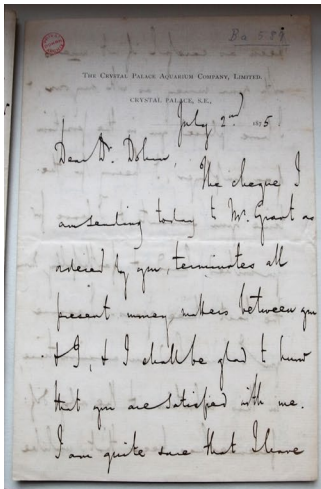 Ba 589
THE CRYSTAL PALACE AQUARIUM COMPANY, LIMITED.
CRYSTAL PALACE, S.E.,
July 2nd 1875.
Dear Dr. Dohrn,
The cheque I
am sending today to Mr. Grant as
ordered by you, terminates all
present money matters between you
& I, & I shall be glad to know
that you are satisfied with me.
I am quite sure that I have